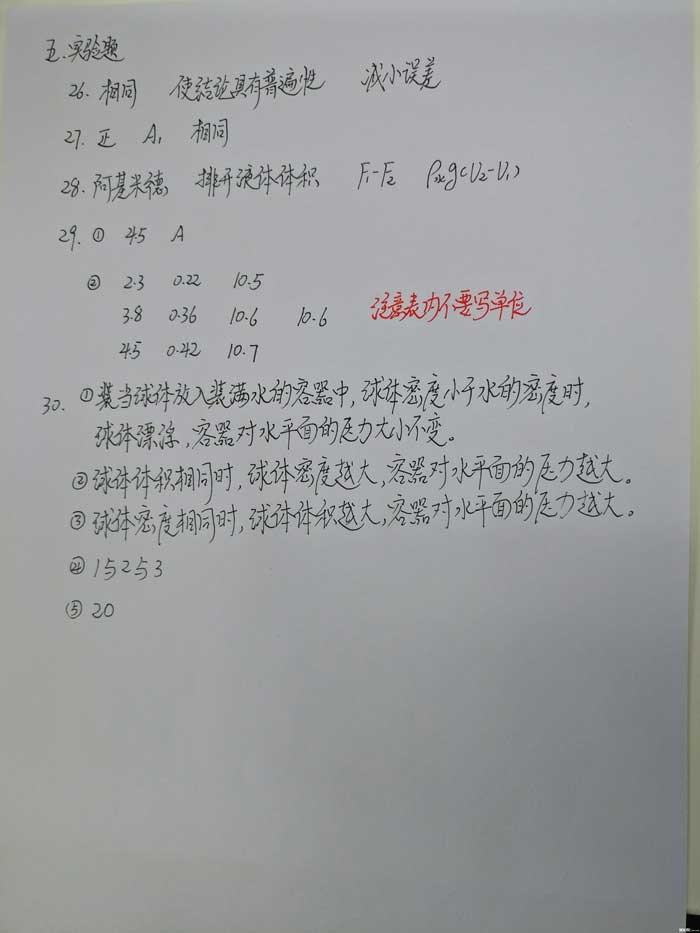 五.实验题
26. 相同 使结论具有普遍性 减小误差
27. 正 A₁ 相同
28. 阿基米德 排开液体体积 F₁-F₂ ρ水g(V₂-V₁)
29. ① 4.5 A
② 2.3 0.22 10.5
3.8 0.36 10.6 10.6 注意表内不要写单位
4.5 0.42 10.7
30. ① 装当球体放入装满水的容器中,球体密度小于水的密度时,
球体漂浮,容器对水平面的压力大小不变。
② 球体体积相同时,球体密度越大,容器对水平面的压力越大。
③ 球体密度相同时,球体体积越大,容器对水平面的压力越大。
④ 1与2与3
⑤ 20